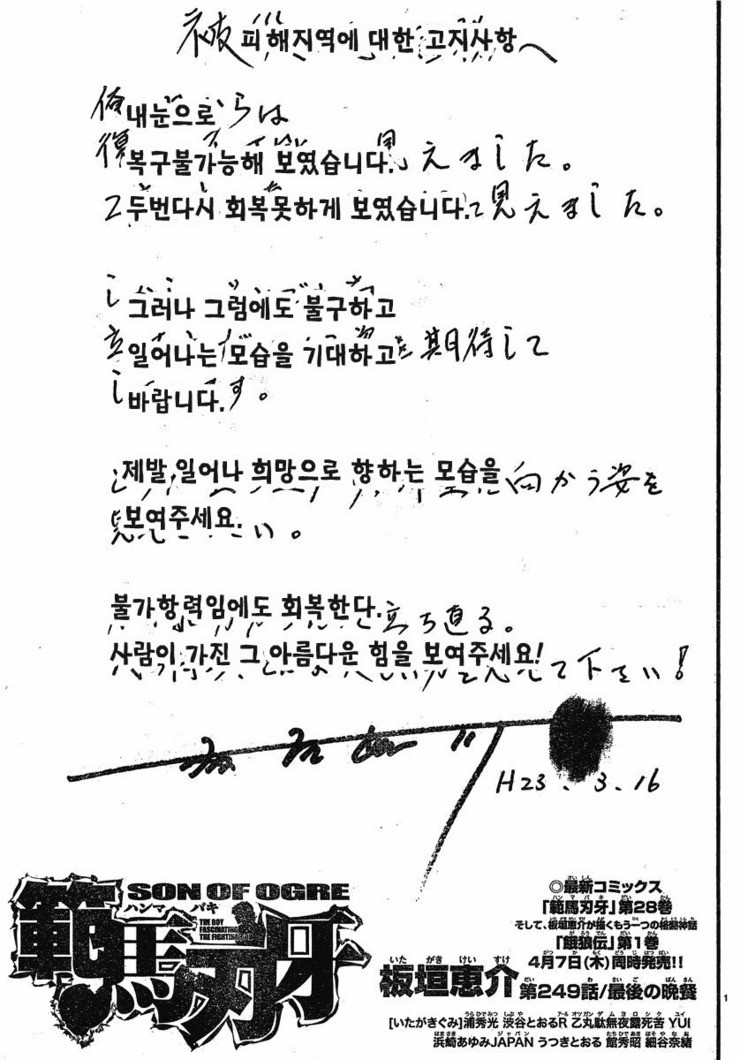 被피해지역에 대한 고지사항へ
俺내눈으로らは
復복구불가능해 보였습니다.見えました。
2두번다시 회복못하게 보였습니다.て見えました。
그러나 그럼에도 불구하고
立일어나는 모습을 기대하고を期待して
바랍니다.す。
제발 일어나 희망으로 향하는 모습을向かう姿を
見보여주세요.さい。
불가항력임에도 회복한다.立ち直る。
사람이 가진 그 아름다운 힘을 보여주세요!て下さい!
H23.3.16
SON OF OGRE
ハンマ バキ
範馬刃牙
THE BOY FASCINATING THE FIGHTING
◎最新コミックス
「範馬刃牙」第28巻
そして、板垣恵介が描くもう一つの格闘神話
「餓狼伝」第1巻
4月7日(木)同時発売!!
板垣恵介 第249話/最後の晩餐
[いたがきぐみ]浦秀光 渋谷とおるR 乙丸駄無夜露死苦 YUI
浜崎あゆみJAPAN うつきとおる 館秀昭 細谷奈緒
1